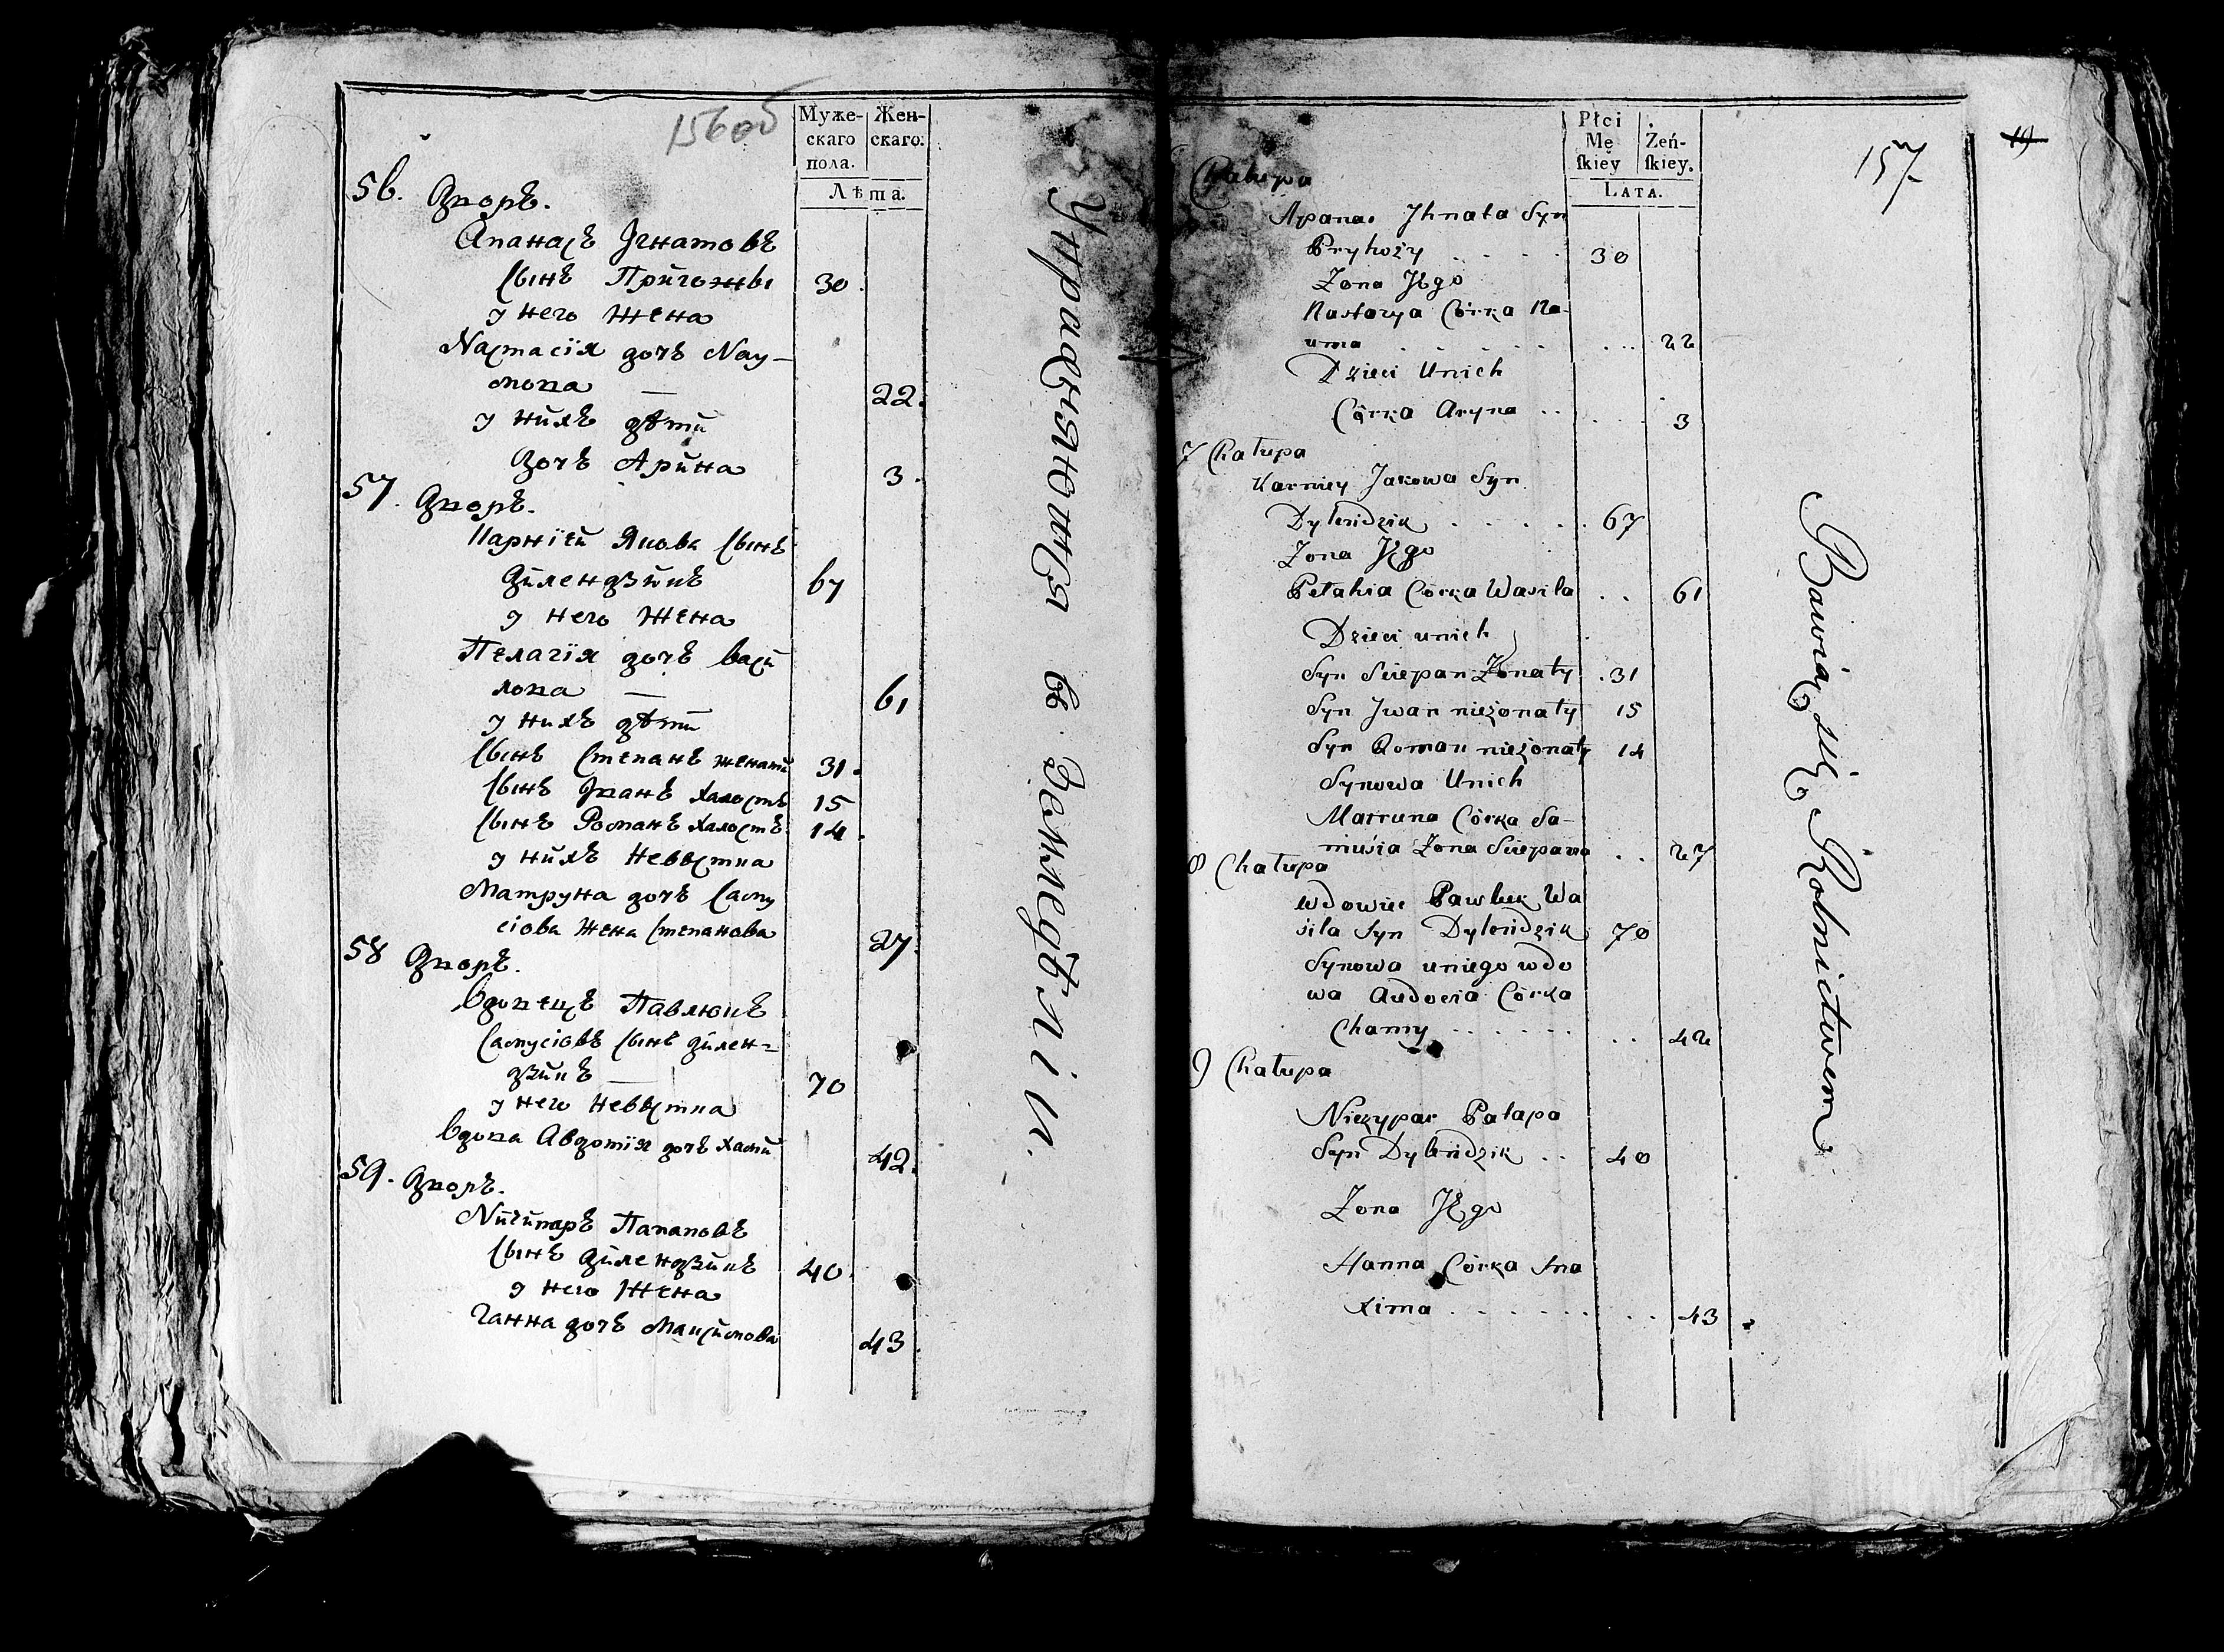 156об
Муже-
скаго
пола.
Жен-
скаго.
Лѣта.
56. Дворъ.
Апанасъ Игнатовъ
сынъ Пригожы 30.
у него жена
Настасія дочь Нау-
мова — 22.
у нихъ дѣти
Дочь Арина 3.
57. Дворъ.
Карнiей Якова сынъ
Дилендзикъ 67
у него жена
Пелагія дочь Васи
лова — 61
у нихъ дѣти
сынъ Степанъ женати 31.
сынъ Иванъ халостъ 15
сынъ Романъ халостъ 14.
у нихъ невѣстка
Матруна дочь Саму
сіова жена Степанова 27.
58 Дворъ.
Вдовецъ Павлюкъ
Самусіовъ сынъ Дилен=
дзикъ — 70
у него невѣстка
Вдова Авдотія дочь Хами 42.
59. Дворъ.
Ничипаръ Патаповъ
сынъ Дилендзикъ 40.
у него жена
Ганна дочь Максимова 43.
Упражняются въ Земледѣліи.
Płci
Mę
ſkiey
Żeń-
ſkiey.
LATA.
157
19
Chałupa
Apanas Jhnata Syn
Pryhoży . . . . 30
Żona Jego
Nastazya Córka Na-
uma . . . . . . 22
Dzieci Unich
Córka Aryna . . . . . 3
7 Chałupa
Karniey Jakowa Syn
Dylendzik . . . . . 67
Żona Jego
Pełahia Córka Wasila . . 61
Dzieci unich
Syn Sciepan Żonaty . 31
Syn Jwan nieżonaty 15
Syn Roman nieżonaty 14
Synowa Unich
Matruna Córka Sa-
musia Żona Sciepana . . 27
8 Chałupa
Wdowiec Pawluk Wa
sila Syn Dylendzik 70
Synowa uniego wdo
wa Audocia Córka
Chamy . . . . . . . . 42
9 Chałupa
Niczypar Patapa
Syn Dylendzik . . 40
Żona Jego
Hanna Córka Ma
xima . . . . . . . . 43
Bawią się Rolnictwem